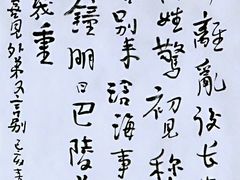 離亂後長
姓驚初見稱
別来滄海事
鐘明日巴陵
幾重
喜見外弟又言別